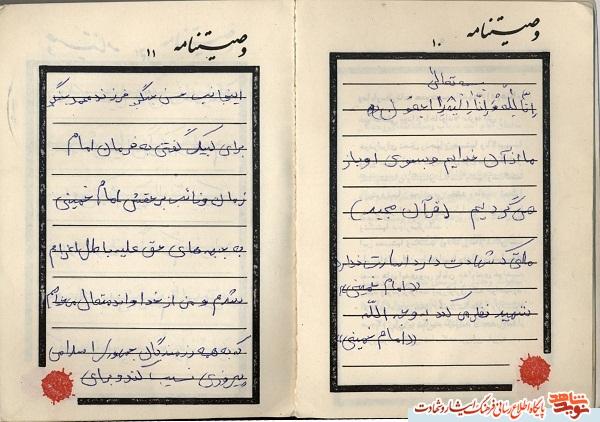 وصیتنامه ۱۰
بسمه تعالی
انا لله و انا الیه راجعون
ما از آن خدایم و بسوی او باز
می گردیم (قرآن مجید)
ملتی که شهادت دارد اسارت ندارد
((امام خمینی))
شهید نظر می کند به وجه الله
((امام خمینی))
وصیتنامه ۱۱
اینجانب حسن سنگر فرزند محمد سنگر
برای لبیک گفتی به فرمان امام
زمان و نائب بر حقش امام خمینی
به جبهه های حق علیه باطل اعزام
شدم و من از خداواند متعال می خواهم
که به همه رزمندگان جمهوری اسلامی
پیروزی نسیب کند و برای
نوید شاهد
پایگاه اطلاع رسانی فرهنگ ایثار و شهادت